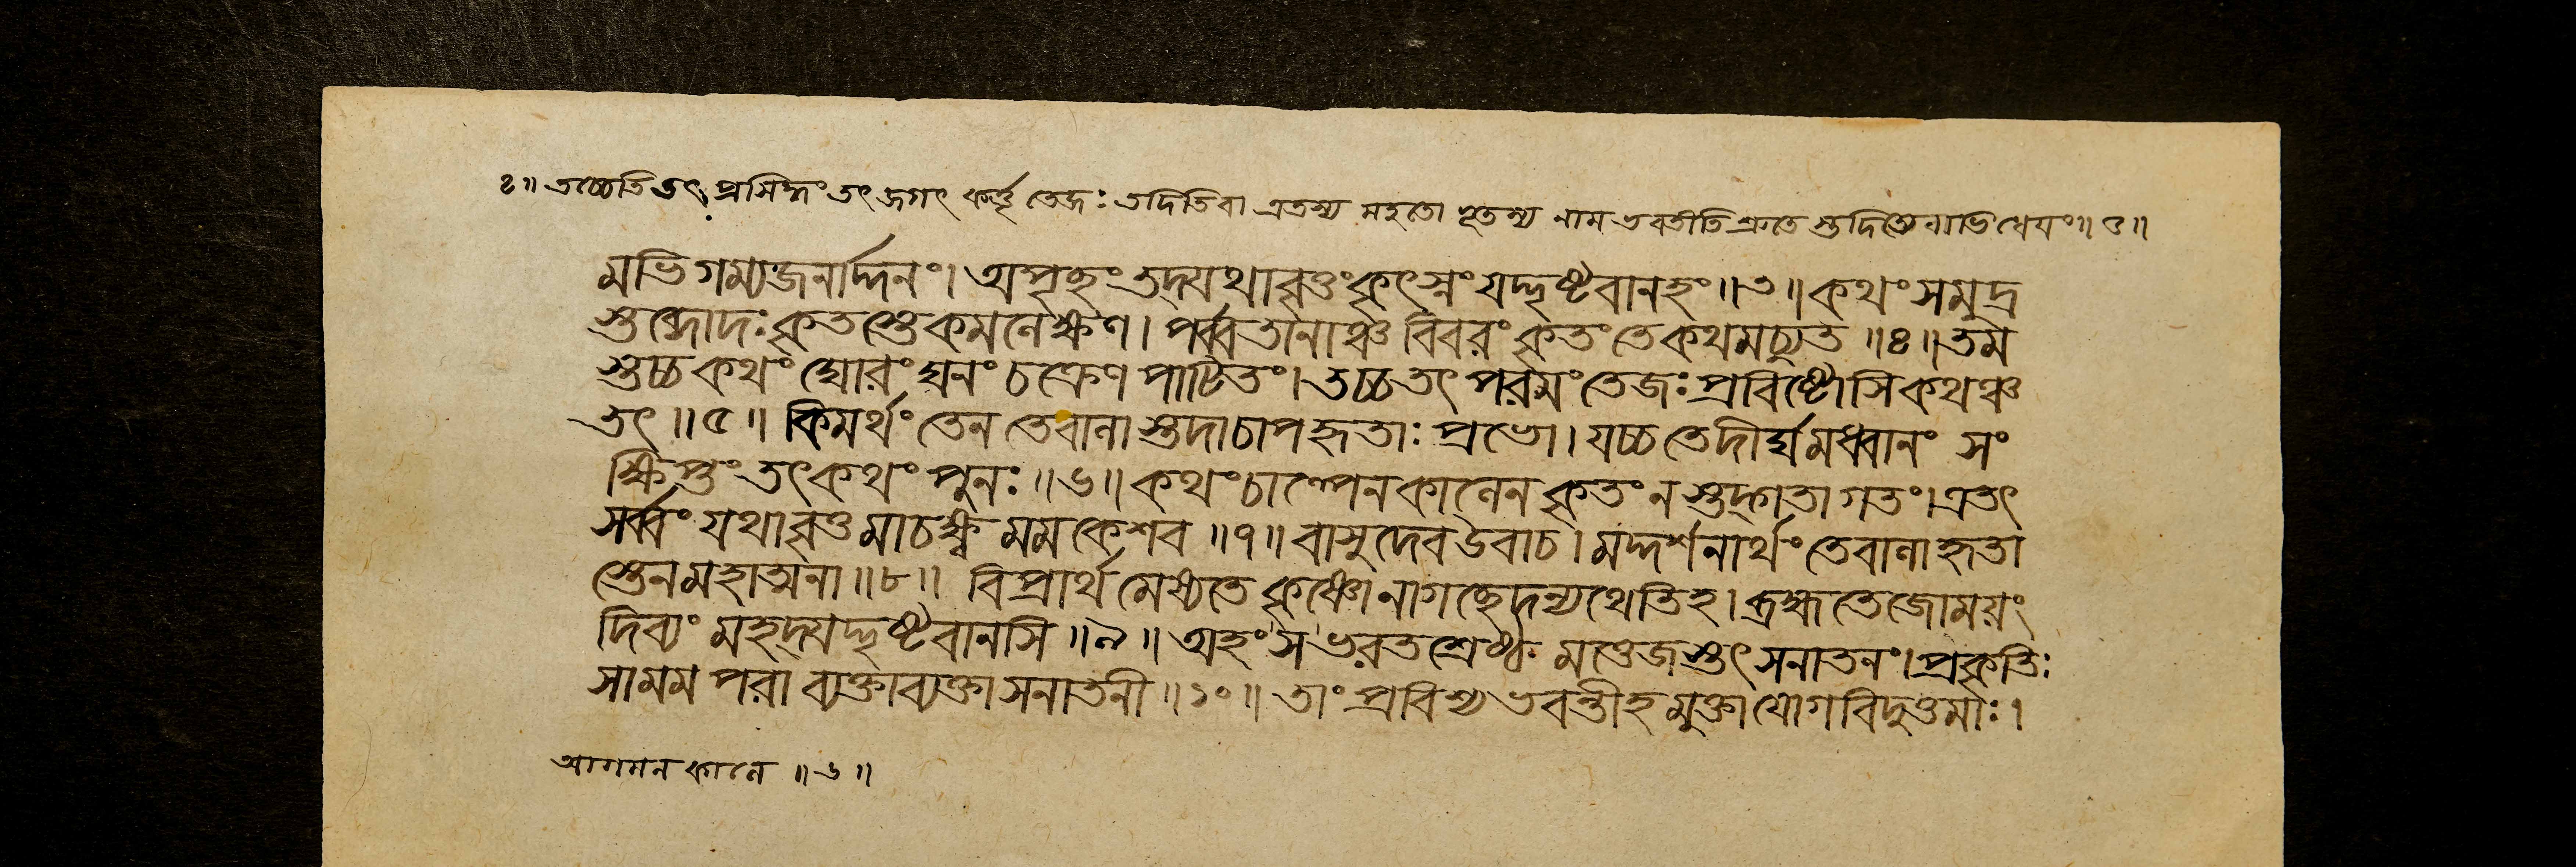 ৪॥ তচ্চেতি তৎ প্রসিদ্ধং তৎ জগৎ কর্ত্তৃ তেজঃ তদিতিবা এতস্য মহতো ভূতস্য নাম ভবতীতি শ্রুতে স্তদিত্যেবাভিধেয়ং॥ ৫॥
মভিগম্যজনার্দ্দনং। অপৃচ্ছং তদ্যথাবৃত্তং কৃৎস্নং যদ্দৃষ্টবানহং॥৩॥ কথং সমুদ্র
স্তব্ধোদঃ কৃতস্তে কমলেক্ষণ। পর্ব্বতানাঞ্চ বিবরং কৃতং তেকথমচ্যুত॥৪॥ তম
স্তচ্চ কথং ঘোরং ঘনং চক্রেণ পাটিতং। তচ্চতৎ পরমং তেজঃ প্রবিষ্টোসি কথঞ্চ
তৎ॥৫॥ কিমর্থং তেন তেবালা স্তদাচাপহৃতাঃ প্রভো। যচ্চ তেদীর্ঘমধ্বানং সং
ক্ষিপ্তং তৎকথং পুনঃ॥৬॥ কথং চাল্পেনকালেন কৃতং ন স্তদ্গতাগতং। এতৎ
সর্ব্বং যথাবৃত্তমাচক্ষ্ব মম কেশব॥৭॥ বাসুদেব উবাচ। মদ্দর্শনার্থং তেবালা হৃতা
স্তেনমহাত্মনা॥৮॥ বিপ্রার্থ মেষ্যতে কৃষ্ণো নাগচ্ছেদন্যথেতিহ। ব্রহ্মতেজোময়ং
দিব্যং মহদ্যদ্দৃষ্টবানসি॥৯॥ অহং স ভরতশ্রেষ্ঠ মত্তেজস্তৎ সনাতনং। প্রকৃতিঃ
সামম পরা ব্যক্তাব্যক্তা সনাতনী॥১০॥ তাং প্রবিশ্য ভবন্তীহ মুক্তা যোগবিদুত্তমাঃ।
আগমন কালে॥৬॥